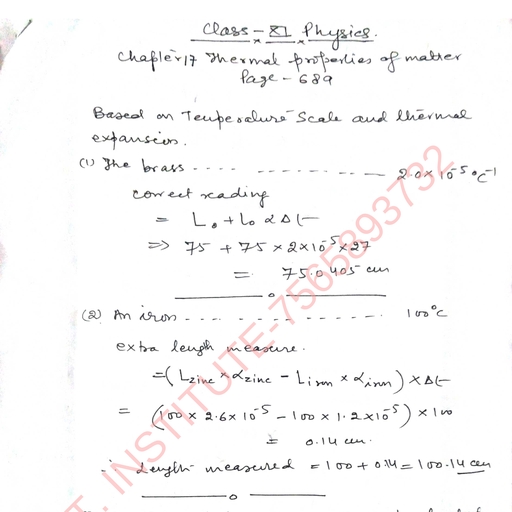 Class - XI Physics.
Chapter 17 Thermal properties of matter
Page - 689
Based on Temperature Scale and thermal
expansion.
(1) The brass .... ......... — 2.0×10⁻⁵ °C⁻¹
correct reading
= L₀ + L₀ α Δt
=> 75 + 75 × 2×10⁻⁵ × 27
= 75.0405 cm
(2) An iron ... ........ 100°C
extra length measure.
= (Lzinc × αzinc – Liron × αiron) × Δt
= (100 × 2.6×10⁻⁵ – 100 × 1.2×10⁻⁵) × 100
= 0.14 cm.
∴ Length measured = 100 + 0.14 = 100.14 cm
T. INSTITUTE-7565893732